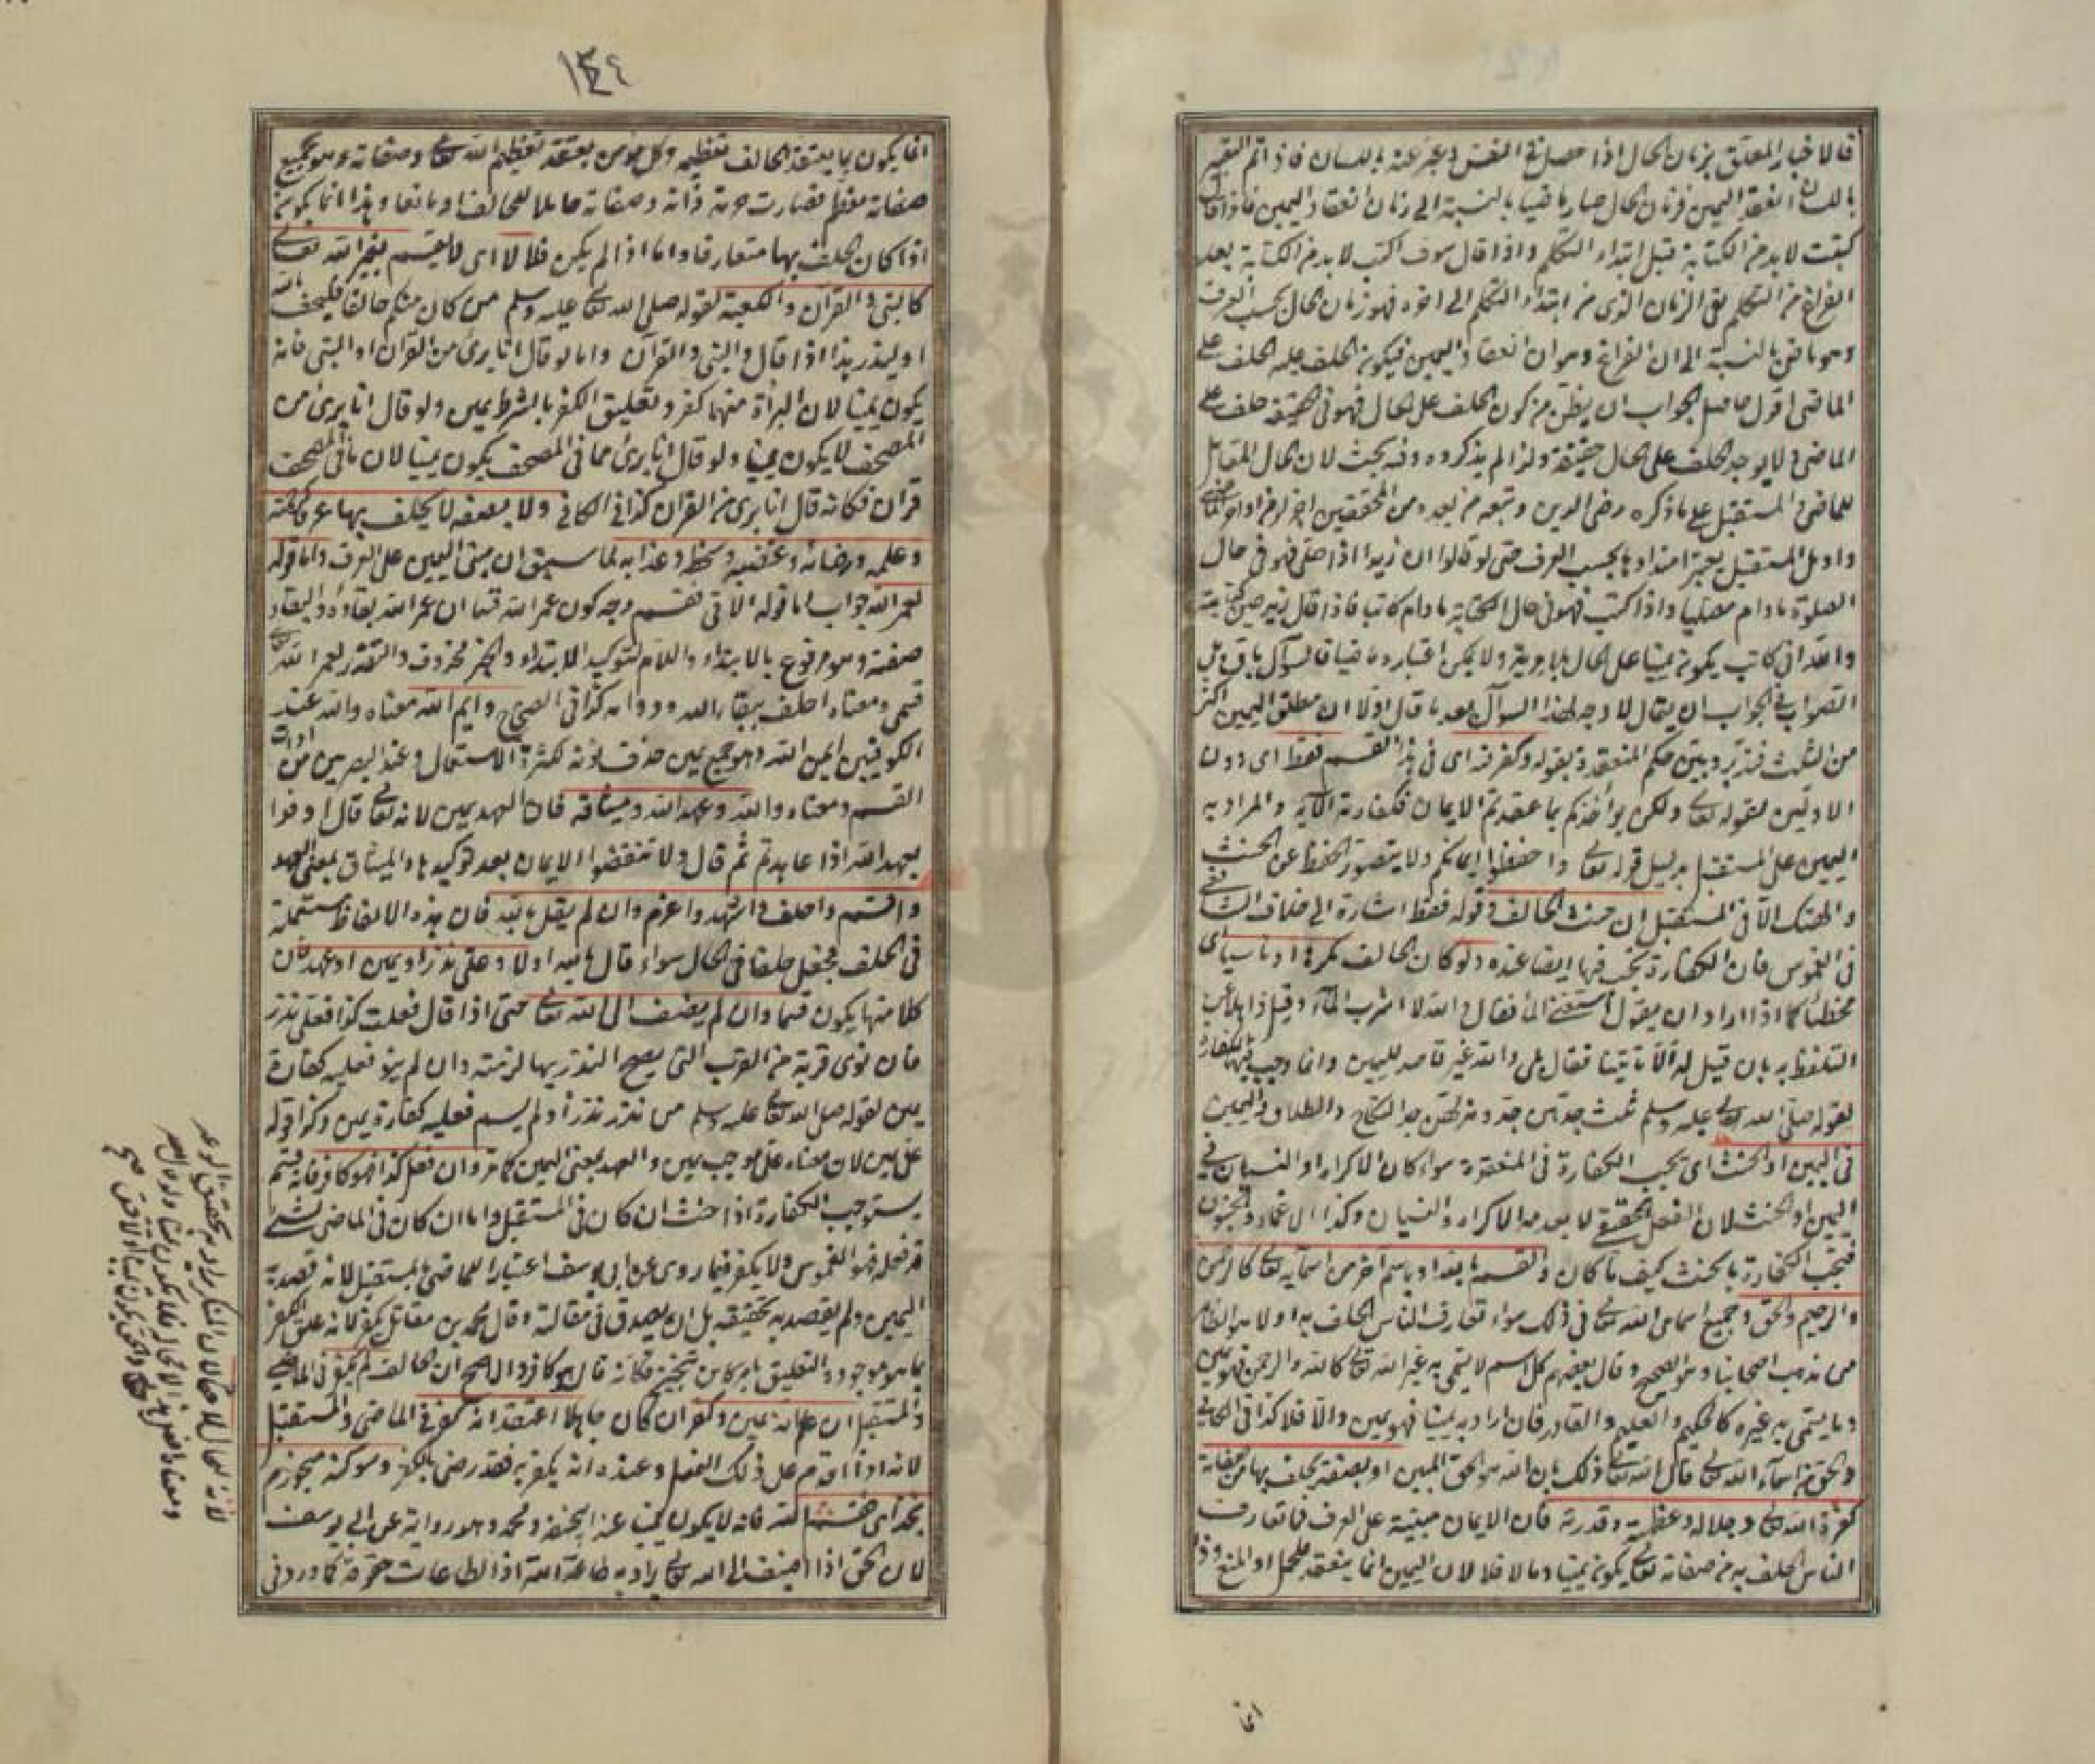 فالاخبار المعلق بزمان الحال اذا حصل في النفس فيعبر عنه باللسان فاذا تم التعبير
باللسان انعقد اليمين فزمان الحال صار ماضيا بالنسبة الى زمان انعقاد اليمين فاذا قال
كتبت لا بد من الكتابة قبل ابتداء التكلم واذا قال سوف اكتب لا بد من الكتابة بعد
الفراغ من التكلم بقي الزمان الذي من ابتداء التكلم الى آخره فهو زمان الحال بحسب العرف
وهو ماض بالنسبة الى آن الفراغ وهو آن انعقاد اليمين فيكون الحلف عليه الحلف على
الماضي اقول حاصل الجواب ان ما يظن من كون الحلف على الحال فهو في الحقيقة حلف على
الماضي فلا يوجد الحلف على الحال حقيقة ولذا لم يذكروه وفيه بحث لان الحال المقابل
للماضي والمستقبل على ما ذكره رضي الدين وتبعه من بعده من المحققين اجزاء من اواخر الماضي
واوائل المستقبل يعتبر امتدادها بحسب العرف حتى لو قالوا ان زيدا اذا صلى فهو في حال
الصلوة ما دام مصليا واذا كتب فهو في حال الكتابة ما دام كاتبا فاذا قال زيد حين كتابته
والله اني كاتب يكون يمينا على الحال بلا مرية ولا يمكن اعتباره ماضيا فالسؤال باق بل
الصواب في الجواب ان يقال لا وجه لهذا السؤال بعد ما قال اولا ان مطلق اليمين اكثر
من الثلث فتدبر وبين حكم المنعقدة بقوله وكفر فيه اى في هذا القسم فقط اى دون
الاولين لقوله تعالى ولكن يؤاخذكم بما عقدتم الايمان فكفارته الآية والمراد به
اليمين على المستقبل بدليل قوله تعالى واحفظوا ايمانكم ولا يتصور الحفظ عن الحنث
والهتك الا في المستقبل ان حنث الحالف وقوله فقط اشارة الى خلاف الشافعي
في الغموس فان الكفارة تجب فيها ايضا عنده ولو كان الحالف مكرها او ناسيا اى
مخطئا كما اذا اراد ان يقول اسقني الماء فقال والله لا اشرب الماء وقيل ذاهلا عن
التلفظ به بان قيل له الا تأتينا فقال بلى والله غير قاصد لليمين وانما وجب فيها الكفارة
لقوله صلى الله تعالى عليه وسلم ثلث جدهن جد وهزلهن جد النكاح والطلاق واليمين
في اليمين او الحنث اى تجب الكفارة في المنعقدة سواء كان الاكراه او النسيان في
اليمين او الحنث لان الفعل الحقيقي لا يعدمه الاكراه والنسيان وكذا الاغماء والجنون
فتجب الكفارة بالحنث كيف ما كان والقسم بالله او باسم آخر من اسمائه تعالى كالرحمن
والرحيم والحق وجميع اسامي الله تعالى في ذلك سواء تعارف الناس الحلف به او لا هو الظاهر
من مذهب اصحابنا وهو الصحيح وقال بعضهم كل اسم لا يسمى به غير الله تعالى كالله والرحمن فهو يمين
وما يسمى به غيره كالحكيم والعليم والقادر فان اراد به يمينا فهو يمين والا فلا كذا في الكافي
والحق من اسماء الله تعالى قال الله تعالى ذلك بان الله هو الحق المبين او بصفة يحلف بها من صفاته
كعزة الله تعالى وجلاله وعظمته وقدرته فان الايمان مبنية على العرف فما تعارف
الناس الحلف به من صفاته تعالى يكون يمينا وما لا فلا لان اليمين انما ينعقد للحمل او المنع وذا
انما
١٤٤
انما يكون بما يعتقد الحالف تعظيمه وكل مؤمن يعتقد تعظيم الله تعالى وصفاته وهو بجميع
صفاته معظم فصارت حرمة ذاته وصفاته حاملا للحالف او مانعا وهذا انما يكون
اذا كان الحلف بها متعارفا واما اذا لم يكن فلا لا اى لا يقسم بغير الله تعالى
كالنبي والقرآن والكعبة لقوله صلى الله تعالى عليه وسلم من كان منكم حالفا فليحلف بالله
او ليذر هذا اذا قال والنبي والقرآن واما لو قال انا بريء من القرآن او النبي فانه
يكون يمينا لان البراءة منهما كفر وتعليق الكفر بالشرط يمين ولو قال انا بريء من
المصحف لا يكون يمينا ولو قال انا بريء مما في المصحف يكون يمينا لان ما في المصحف
قرآن فكانه قال انا بريء من القرآن كذا في الكافي ولا بصفة لا يحلف بها عرفا كرحمته
وعلمه ورضائه وغضبه وسخطه وعذابه لما سبق ان مبنى اليمين على العرف واما قوله
لعمر الله جواب اما قوله الآتي فقسم وجه كون عمر الله قسما ان عمر الله بقاؤه والبقاء
صفته وهو مرفوع بالابتداء واللام لتوكيد الابتداء والخبر محذوف والتقدير لعمر الله
قسمي ومعناه احلف ببقاء الله ودوامه كذا في الصحاح وايم الله معناه والله عند
الكوفيين ايمن الله وهو جمع يمين حذف نونه لكثرة الاستعمال وعند البصريين من ادوات
القسم ومعناه والله وعهد الله وميثاقه فان العهد يمين لانه تعالى قال اوفوا
بعهد الله اذا عاهدتم ثم قال ولا تنقضوا الايمان بعد توكيدها والميثاق بمعنى العهد
واقسم واحلف واشهد واعزم وان لم يقل بالله فان هذه الالفاظ مستعملة
في الحلف فتجعل حلفا في الحال سواء قال بالله او لا وعلى نذر او يمين او عهد فان
كلا منها يكون قسما وان لم يضف الى الله تعالى حتى اذا قال فعلت كذا فعلى نذر
فان نوى قربة من القرب التي يصح النذر بها لزمته وان لم ينو فعليه كفارة
يمين لقوله صلى الله تعالى عليه وسلم من نذر نذرا ولم يسم فعليه كفارة يمين وكذا قوله
على يمين لان معناه على موجب يمين والعهد بمعنى اليمين كما مر وان فعل كذا فهو كافر فانه قسم
يستوجب الكفارة اذا حنث ان كان في المستقبل واما ان كان في الماضي لشيء
قد فعله فهو الغموس ولا يكفر فيما روي عن ابي يوسف اعتبارا للماضي بالمستقبل لانه قصد به
اليمين ولم يقصد به تحقيقه بل ان يصدق في مقالته وقال محمد بن مقاتل يكفر لانه علق الكفر
بما هو موجود والتعليق بامر كائن تنجيز فكانه قال هو كافر والاصح ان الحالف لم يكفر في الماضي
والمستقبل ان علم انه يمين وكفر ان كان جاهلا اعتقد انه كفر في الماضي والمستقبل
لانه اذا اقدم على ذلك الفعل وعنده انه يكفر به فقد رضي بالكفر وسوكند ميخورم
بخداى قسم الله فانه لا يكون يمينا عند ابي حنيفة ومحمد وهو رواية عن ابي يوسف
لان الحق اذا اضيف الى الله تعالى يراد به طاعة الله اذ الطاعات حقوقه كما ورد في